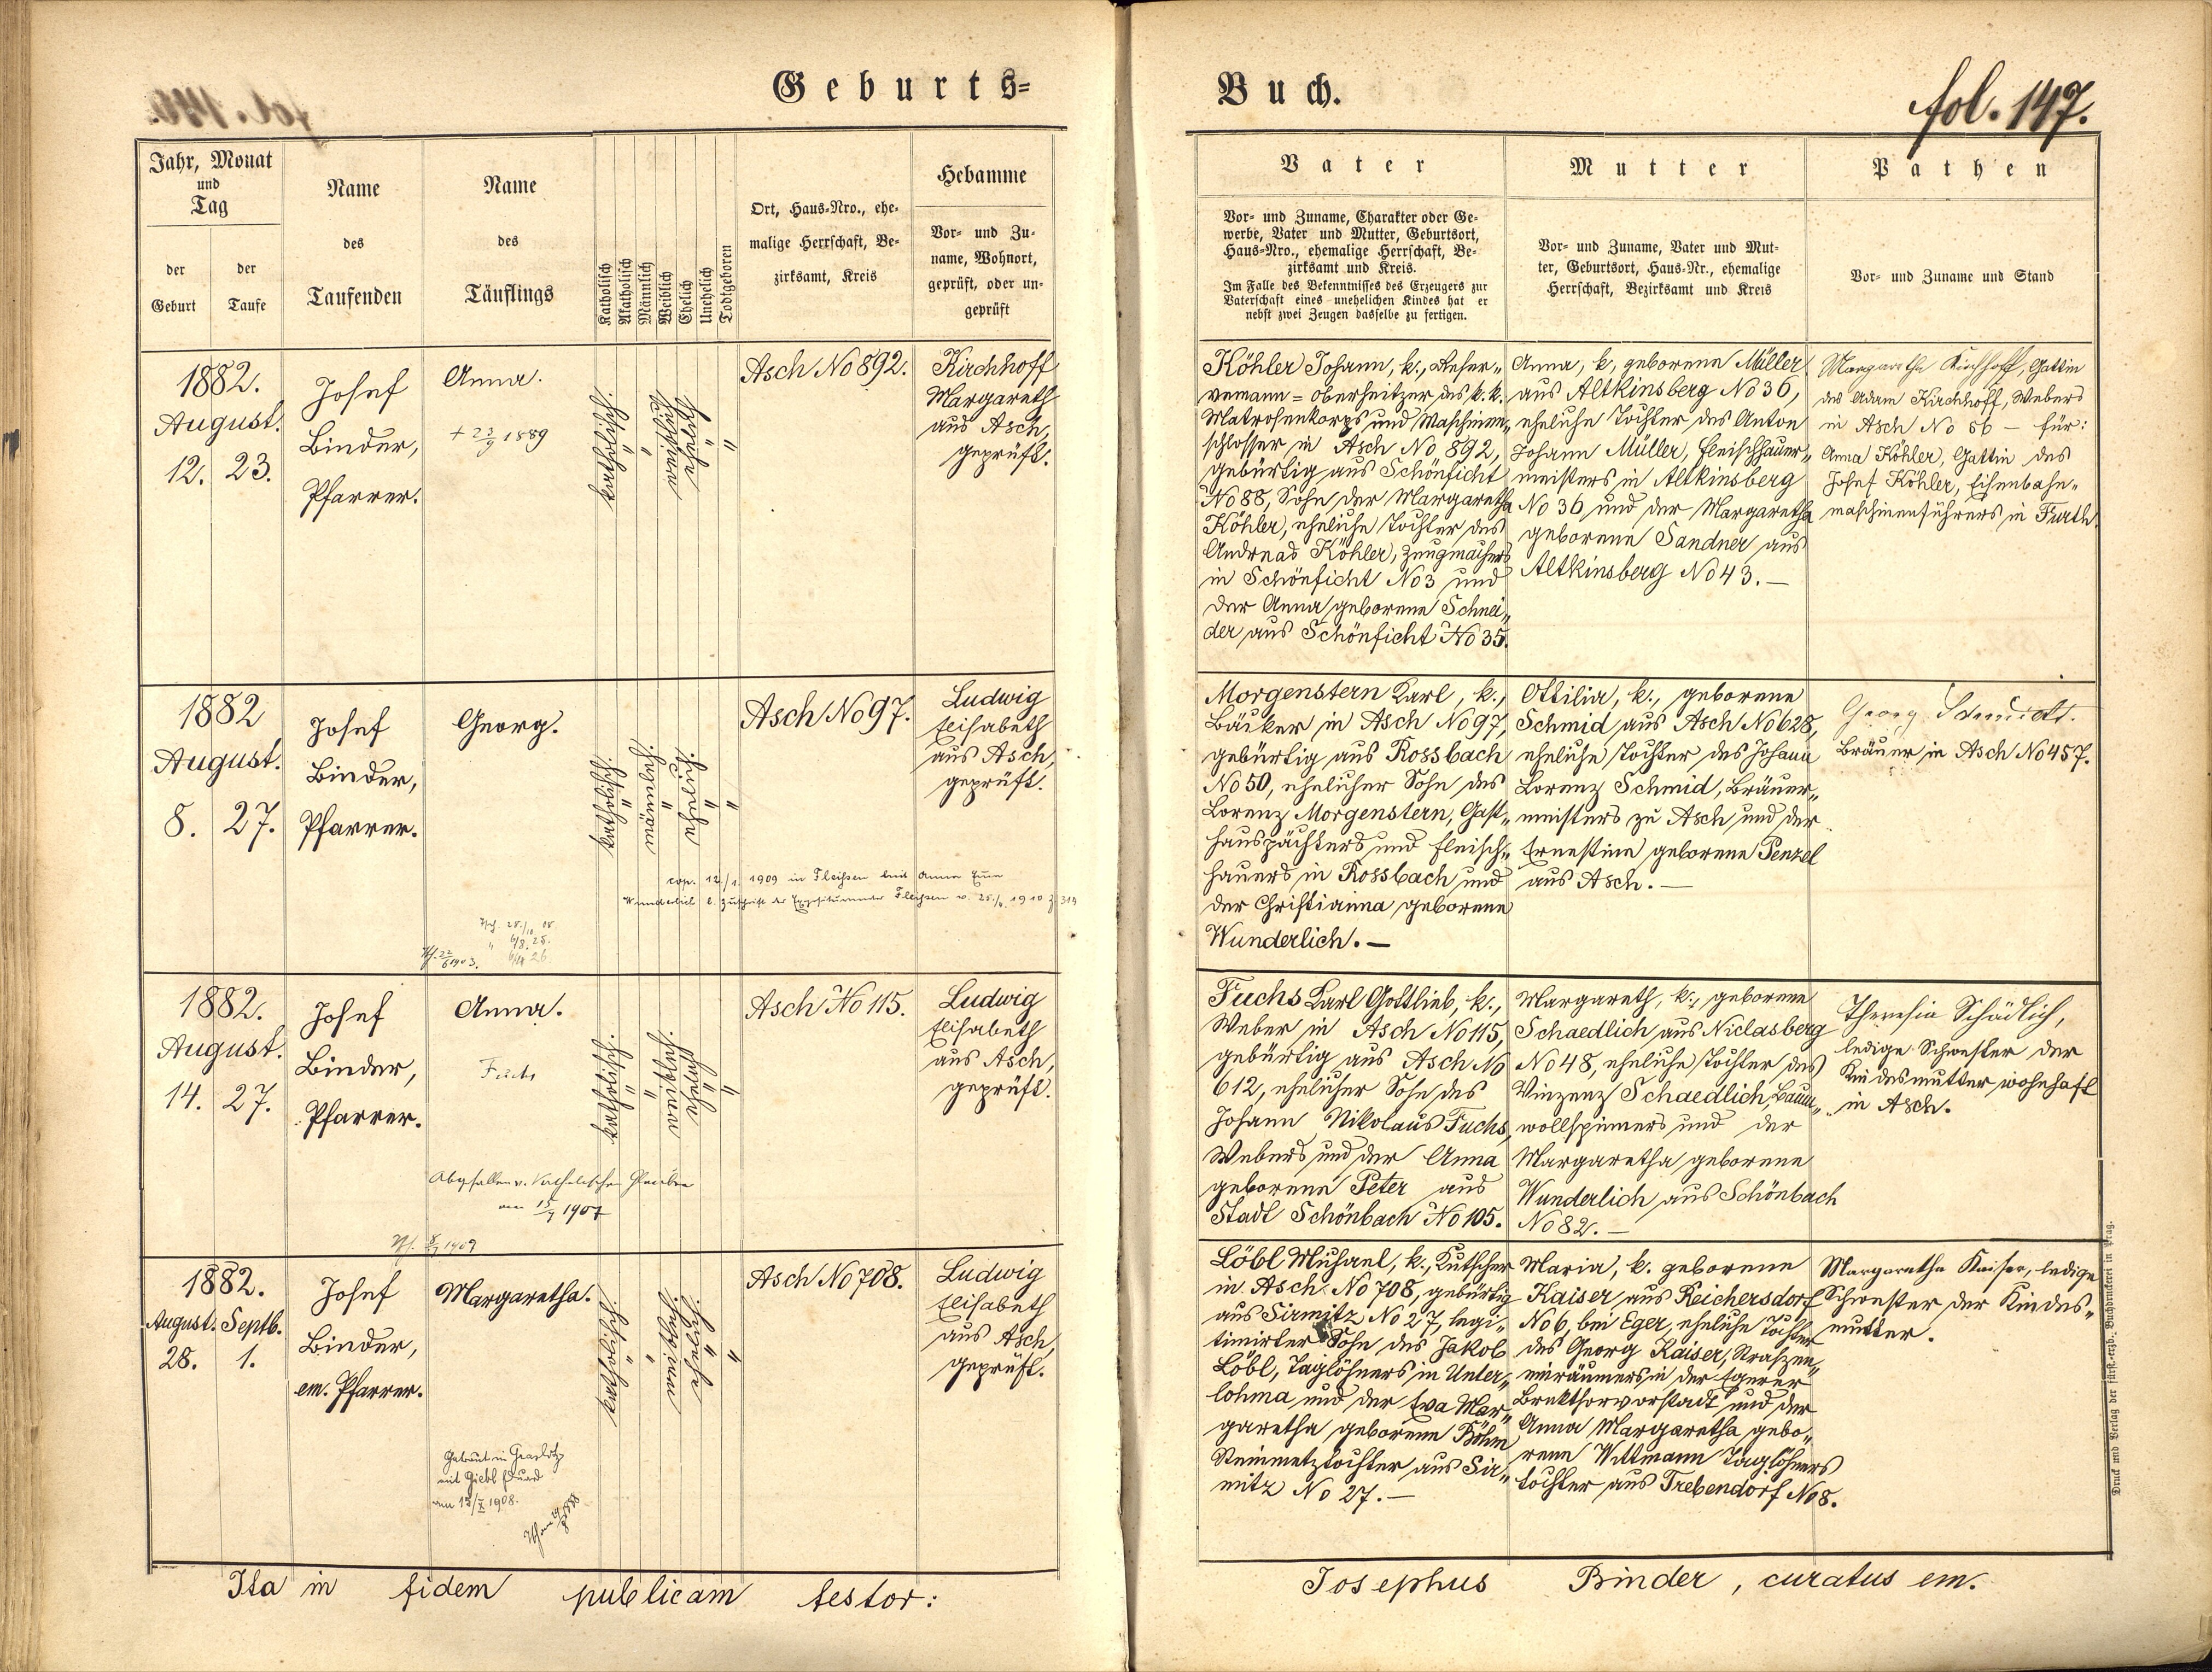 Geburts-
Buch.
fol. 147.
Jahr, Monat
und
Tag
der
Geburt
der
Taufe
Name
des
Taufenden
Name
des
Täuflings
Katholisch
Akatholisch
Männlich
Weiblich
Ehelich
Unehelich
Todtgeboren
Ort, Haus-Nro., ehe-
malige Herrschaft, Be-
zirksamt, Kreis
Hebamme
Vor- und Zu-
name, Wohnort,
geprüft, oder un-
geprüft
Vater
Vor- und Zuname, Charakter oder Ge-
werbe, Vater und Mutter, Geburtsort,
Haus-Nro., ehemalige Herrschaft, Be-
zirksamt und Kreis.
Im Falle des Bekenntnisses des Erzeugers zur
Vaterschaft eines unehelichen Kindes hat er
nebst zwei Zeugen dasselbe zu fertigen.
Mutter
Vor- und Zuname, Vater und Mut-
ter, Geburtsort, Haus-Nr., ehemalige
Herrschaft, Bezirksamt und Kreis
Pathen
Vor- und Zuname und Stand
1882.
August.
12. 23.
Josef
Binder,
Pfarrer.
Anna.
+ 23/9 1889
katholisch.
"
"
weiblich
ehelich
"
"
Asch No 892.
Kirchhoff
Margareth
aus Asch,
geprüft.
Köhler Johann, k., Reser-
vemann = Oberheitzer des k.k.
Matrosenkorps und Maschinen-
schlosser in Asch No 892,
gebürtig aus Schönficht
No 88, Sohn der Margaretha
Köhler, eheliche Tochter des
Andreas Köhler, Zeugmachers
in Schönficht No 3 und
der Anna geborene Schnei-
der aus Schönficht No 35.
Anna, k., geborene Müller
aus Altkinsberg No 36,
eheliche Tochter des Anton
Johann Müller, Fleischhauer-
meisters in Altkinsberg
No 36 und der Margaretha
geborene Sandner aus
Altkinsberg No 43.—
Margaretha Kirchhoff, Gattin
des Adam Kirchhoff, Webers
in Asch No 56 – für:
Anna Köhler, Gattin des
Josef Köhler, Eisenbahn-
maschinenführers in Furth.
1882
August.
8. 27.
Josef
Binder,
Pfarrer.
Georg.
katholisch.
"
männlich.
"
ehelich.
"
"
Asch No 97.
Ludwig
Elisabeth
aus Asch,
geprüft.
cop. 12/1. 1909 in Fleißen mit Anna
Wunderlich l. Zuschrift der Fleißen v. 25./4. 1910 Z 314
25./10. 08.
" 4/8. 25.
26.
22/6 1903.
Morgenstern Karl, k.,
Bäcker in Asch No 97,
gebürtig aus Rossbach
No 50, ehelicher Sohn des
Lorenz Morgenstern, Gast-
hauspächters und Fleisch-
hauers in Rossbach und
der Christianna geborene
Wunderlich. —
Ottilia, k., geborene
Schmid aus Asch No 628,
eheliche Tochter des Johann
Lorenz Schmid, Bräuer-
meisters zu Asch und der
Ernestine geborene Penzel
aus Asch. —
Georg Schmidt.
Bräuer in Asch No 457.
1882.
August.
14. 27.
Josef
Binder,
Pfarrer.
Anna.
Fuchs
katholisch.
"
"
weiblich.
ehelich
"
"
Asch No 115.
Ludwig
Elisabeth
aus Asch,
geprüft.
Abgefallen v. katholischen Glauben
am 15/7 1907
1909
Fuchs Karl Gottlieb, k.,
Weber in Asch No 115,
gebürtig aus Asch No
612, ehelicher Sohn des
Johann Nikolaus Fuchs,
Webers und der Anna
geborene Peter aus
Stadt Schönbach No 105.
Margareth, k., geborene
Schaedlich aus Niclasberg
No 48, eheliche Tochter des
Vinzenz Schaedlich, Baum-
wollspinners und der
Margaretha geborene
Wunderlich aus Schönbach
No 82. —
Theresia Schädlich,
ledige Schwester der
Kindesmutter wohnhaft
in Asch.
1882.
August. Septb.
28. 1.
Josef
Binder,
em. Pfarrer.
Margaretha.
katholisch.
"
"
weiblich.
ehelich.
"
"
Asch No 708.
Ludwig
Elisabeth
aus Asch,
geprüft.
Getraut in Graslitz
mit Giebl Eduard
am 13/X 1908.
Löbl Michael, k., Kutscher
in Asch No 708, gebürtig
aus Sirmitz No 27, legi-
timirter Sohn des Jakob
Löbl, Taglöhners in Unter-
lohma und der Eva Mar-
garetha geborene Böhm
Steinmetztochter aus Sir-
mitz No 27. —
Maria, k. geborene
Kaiser aus Reichersdorf
No 6, bei Eger, eheliche Tochter
des Georg Kaiser, Straßen-
einräumers in der Egerer
Brukthorvorstadt und der
Anna Margaretha gebo-
rene Wittmann Taglöhners
tochter aus Trebendorf No 8.
Margaretha Kaiser, ledige
Schwester der Kindes-
mutter.
Druck und Verlag der fürst.-erzb. Buchdruckerei in Prag.
Ita in fidem publicam testor:
Josephus Binder, curatus em.